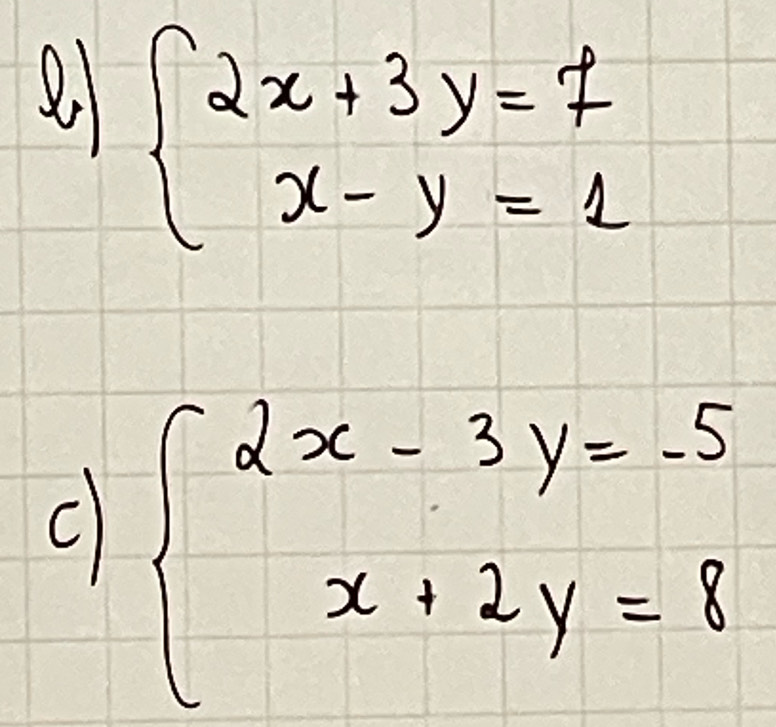 b) { 2x + 3y = 7
x - y = 1
c) { 2x - 3y = -5
x + 2y = 8